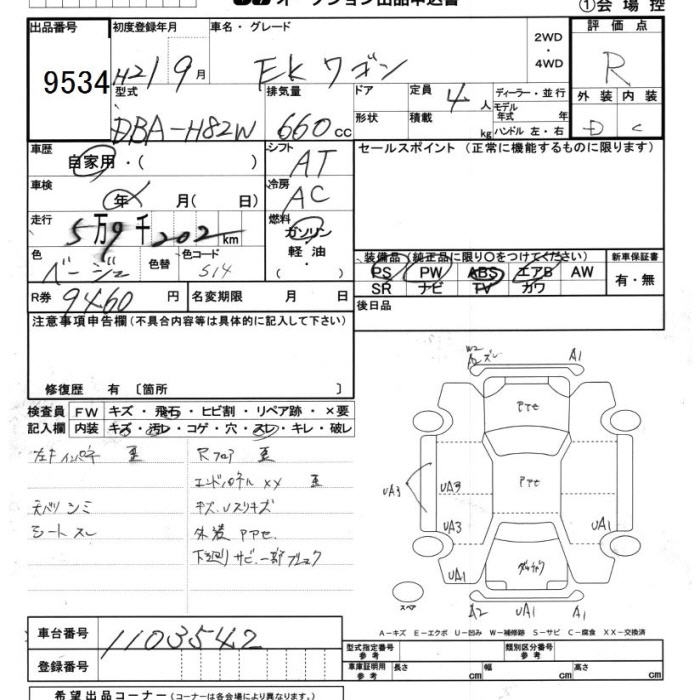 オークション出品申込書
①会場控
出品番号
9534
初度登録年月
H21 9月
車名・グレード
EKワゴン
2WD
・
4WD
評価点
R
外装 内装
D C
型式
DBA-H82W
排気量
660cc
ドア
形状
定員
4人
積載
kg
ディーラー・並行
モデル
年式 年
ハンドル 左・右
車歴
自家用・( )
シフト
AT
セールスポイント (正常に機能するものに限ります)
車検
年 月( 日)
冷房
AC
走行
5万9千202km
燃料
ガソリン
軽油・
( )
色
ベージュ
色替
色コード
S14
装備品(純正品に限り○をつけてください)
PS PW ABS エアB AW
SR ナビ TV カワ
新車保証書
有・無
R券 9460円
名変期限 月 日
後日品
注意事項申告欄(不具合内容等は具体的に記入して下さい)
修復歴 有〔箇所 〕
検査員 FW キズ・飛石・ヒビ割・リペア跡・×要
記入欄 内装 キズ・汚レ・コゲ・穴・スレ・キレ・破レ
左Fインパネ 歪
Rフロア 歪
エンドパネルXX 歪
天バリシミ
キズ、Uスリキズ
シートスレ
外装PPセ
下廻りサビ、一部ブレーク
W2
A2ズレ
A1
PPセ
PPセ
UA3
UA3
UA3
UA1
UA1
A2
UA1
A1
スペア
A-キズ E-エクボ U-凹み W-補修跡 S-サビ C-腐食 XX-交換済
車台番号
1103542
登録番号
型式指定番号
参考
類別区分番号
参考
車庫証明用
参考
長さ cm 幅 cm 高さ cm
希望出品コーナー(コーナーは各会場により異なります。)